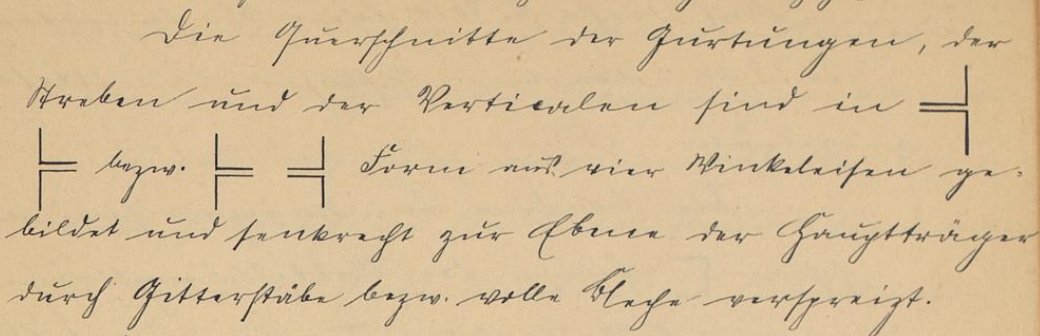 Die Querschnitte der Gurtungen, der
Streben und der Verticalen sind in
bezw. Form aus vier Winkeleisen ge-
bildet und senkrecht zur Ebene der Hauptträger
durch Gitterstäbe bezw. volle Bleche verspreizt.